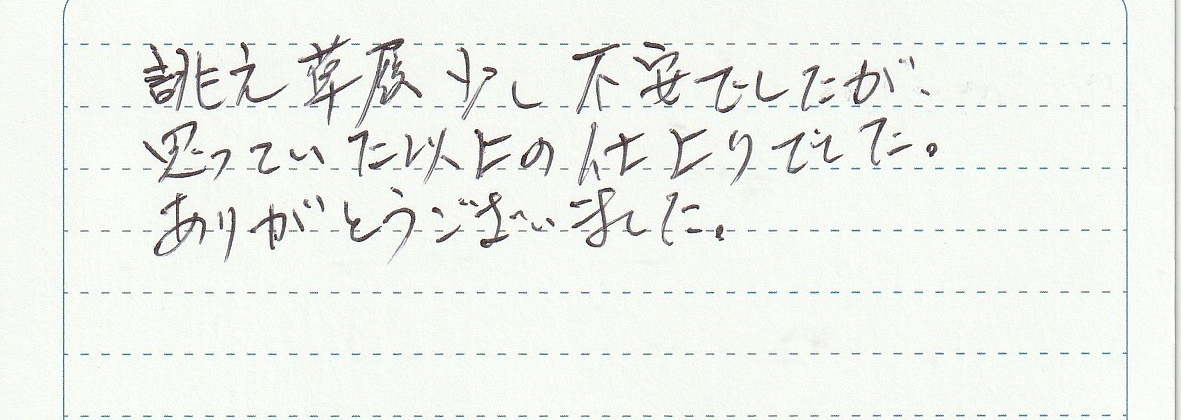 誂え草履少し不安でしたが、
思っていた以上の仕上りでした。
ありがとうございました。